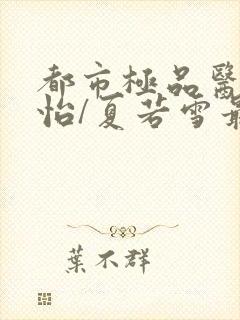 都市極品醫
怡/夏若雪最
葉不群